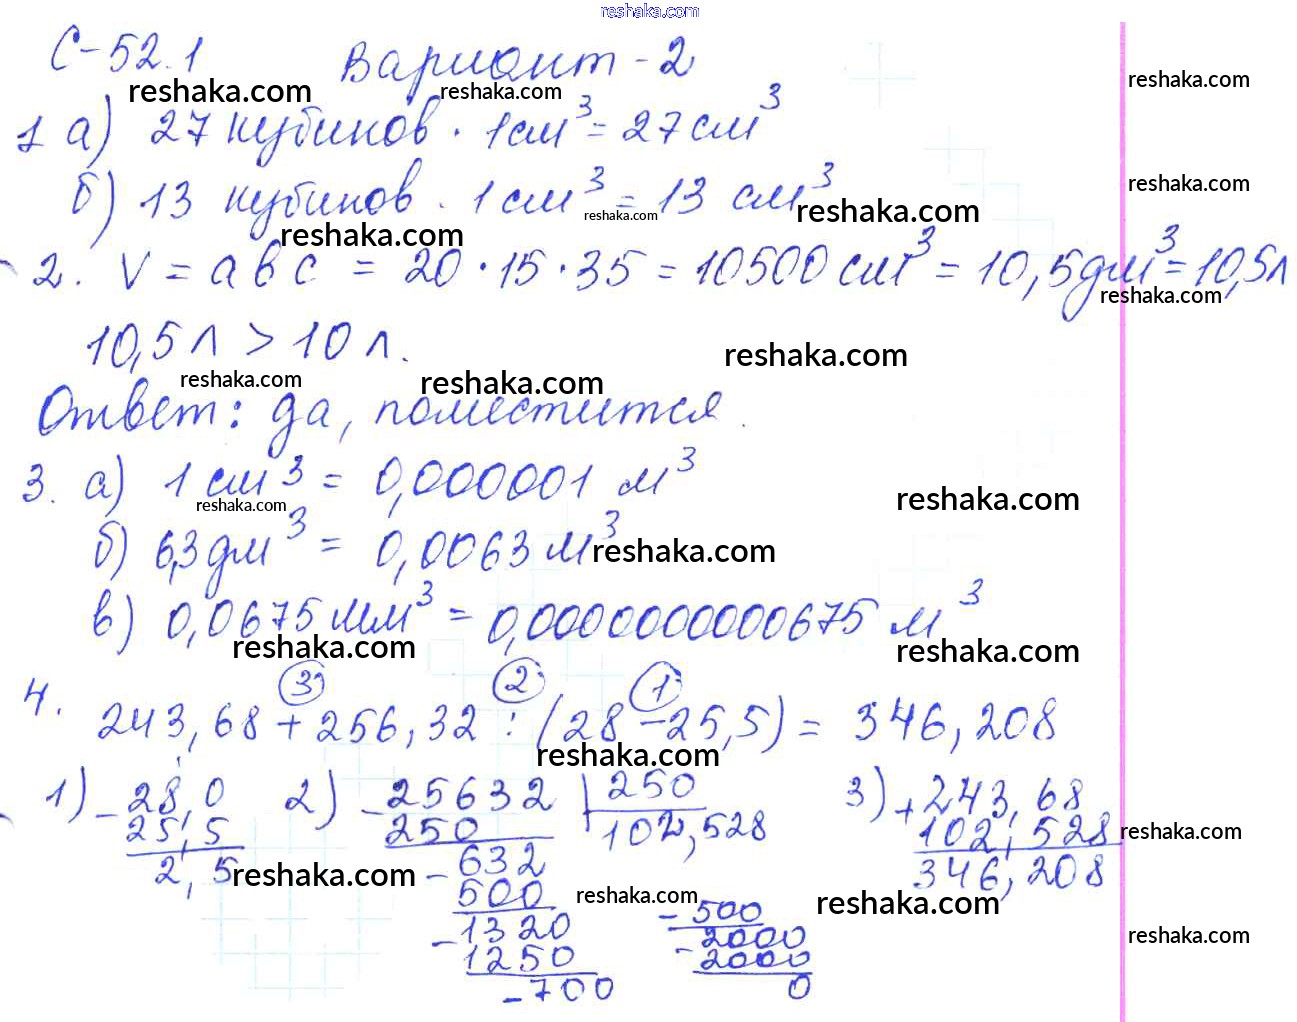 reshaka.com
С-52.1 Вариант-2
reshaka.com reshaka.com reshaka.com
1 а) 27 кубиков · 1 см³ = 27 см³
reshaka.com
б) 13 кубиков · 1 см³ = 13 см³
reshaka.com reshaka.com reshaka.com
2. V = abc = 20 · 15 · 35 = 10500 см³ = 10,5 дм³ = 10,5 л
reshaka.com
10,5 л > 10 л.
reshaka.com reshaka.com reshaka.com
Ответ: да, поместится.
3. а) 1 см³ = 0,000001 м³
reshaka.com reshaka.com
б) 6,3 дм³ = 0,0063 м³
reshaka.com
в) 0,0675 мм³ = 0,0000000000675 м³
reshaka.com reshaka.com
3 2 1
4. 243,68 + 256,32 : (28 - 25,5) = 346,208
reshaka.com
1) - 28,0 2) - 25632 | 250 3) + 243,68
25,5 250 102,528 102,528
reshaka.com
2,5 - 632 346,208
reshaka.com
500
reshaka.com reshaka.com
- 1320 - 500
1250 - 2000
reshaka.com
- 700 2000
0